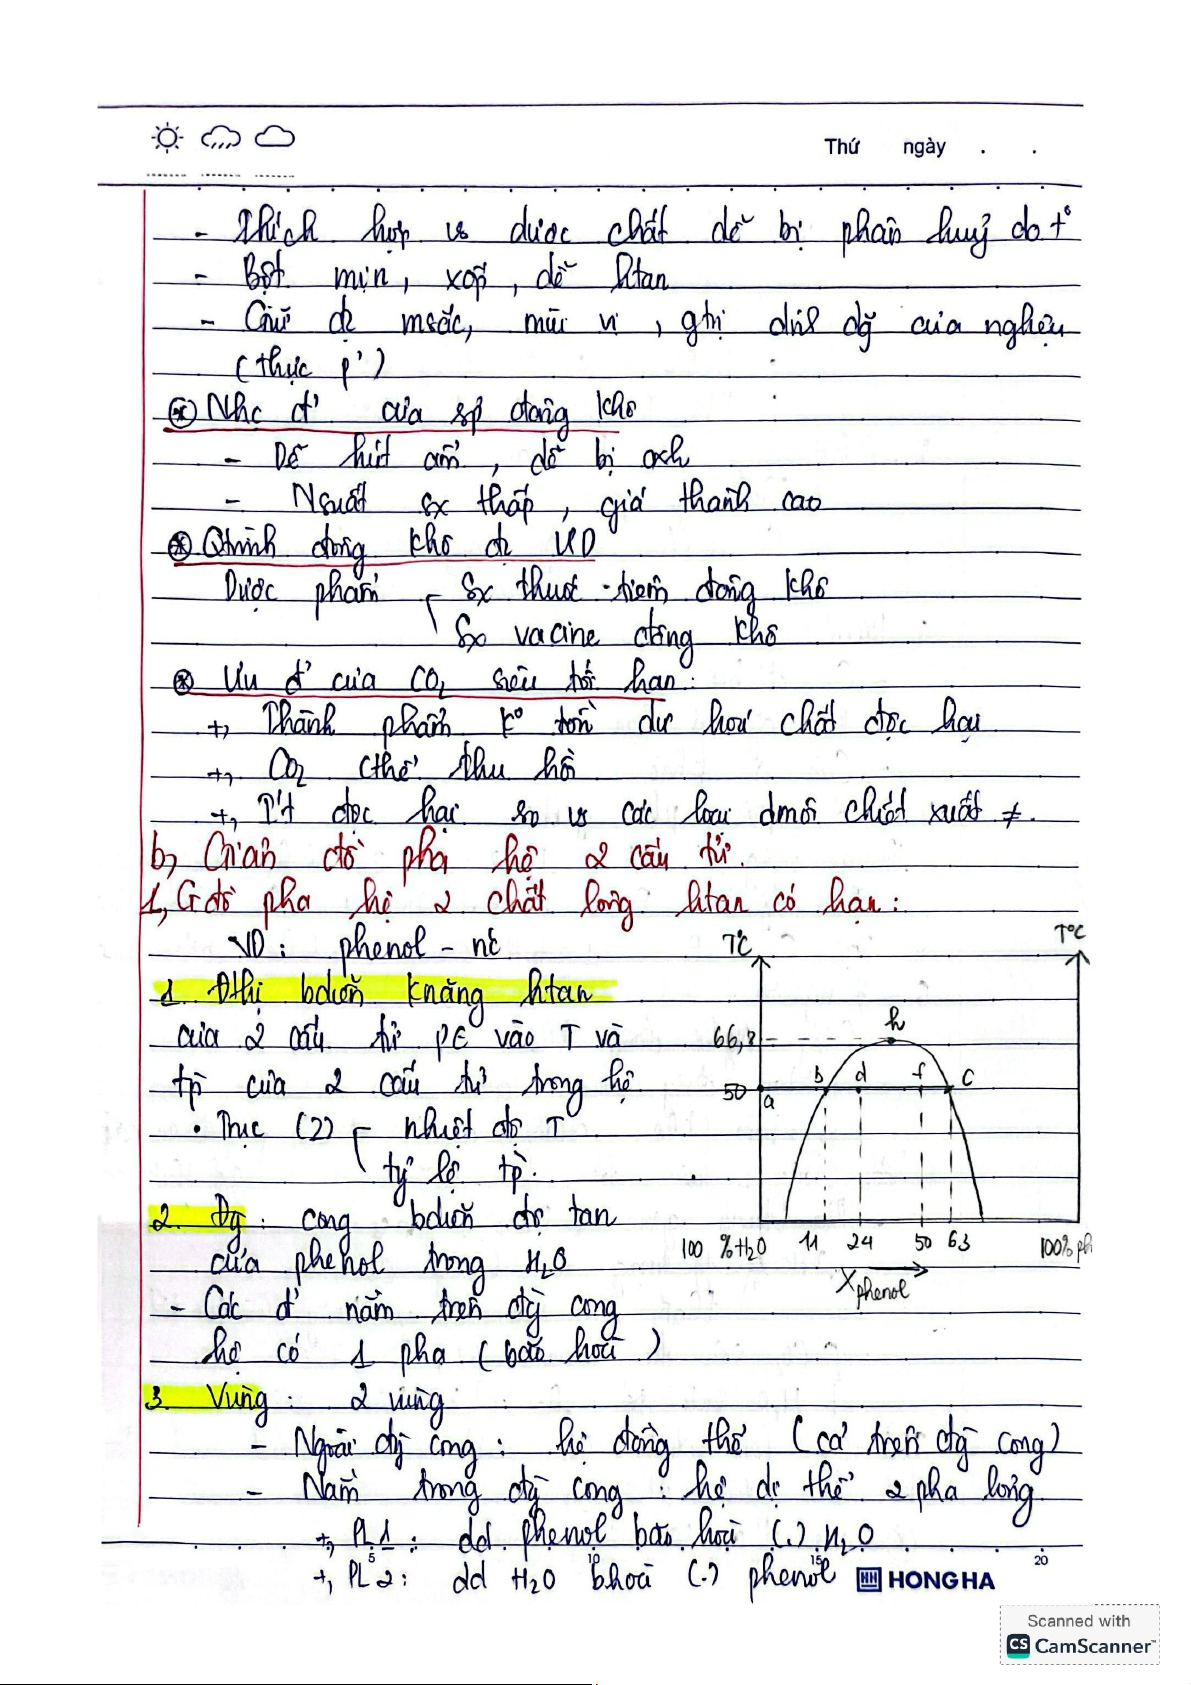 Thứ ngày . .
- Thích hợp vs dược chất dễ bị phân huỷ do t°
- Bột mịn, xốp, dễ htan
- Giữ đc msắc, mùi vị, gtrị của nghiệu
(thực p')
* Nhc đ' của sp đông khô
- Dễ hút ẩm, dễ bị oxh
- Nsuất sx thấp, giá thành cao
* Qtrình đông khô đc ƯD
Dược phẩm sx thuốc tiêm đông khô
sx vacine đông khô
* Ưu đ' của CO2 siêu tới hạn:
+, Thành phẩm k° tồn dư hoá chất độc hại
+, CO2 cthể thu hồi
+, Ít độc hại so vs các loại dmôi chiết xuất ≠.
b, Giản đồ pha hệ 2 cấu tử.
1, Gđồ pha hệ 2 chất lỏng htan có hạn:
VD: phenol - nc
T°C
T°C
1. Đthị bdiễn knăng htan
h
của 2 cấu tử pt vào T và
66,8
tp của 2 cấu tử trong hệ.
b d f c
50 a
• Trục (2) nhiệt độ T
tỷ lệ tp.
2. Đg: cong bdiễn độ tan
của phenol trong H2O
100 %H2O 11 24 50 63 100% ph
Xphenol
- Các đ' nằm trên đg cong
hệ có 1 pha (bão hoà)
3. Vùng: 2 vùng
- Ngoài đg cong: hệ đồng thể (cả trên đg cong)
- Nằm trong đg cong: hệ dị thể 2 pha lỏng
+, PL 1: dd phenol bão hoà (.) H2O
5 10 15 20
+, PL 2: dd H2O bhoà (.) phenol
HH HONG HA
Scanned with
CS CamScanner™